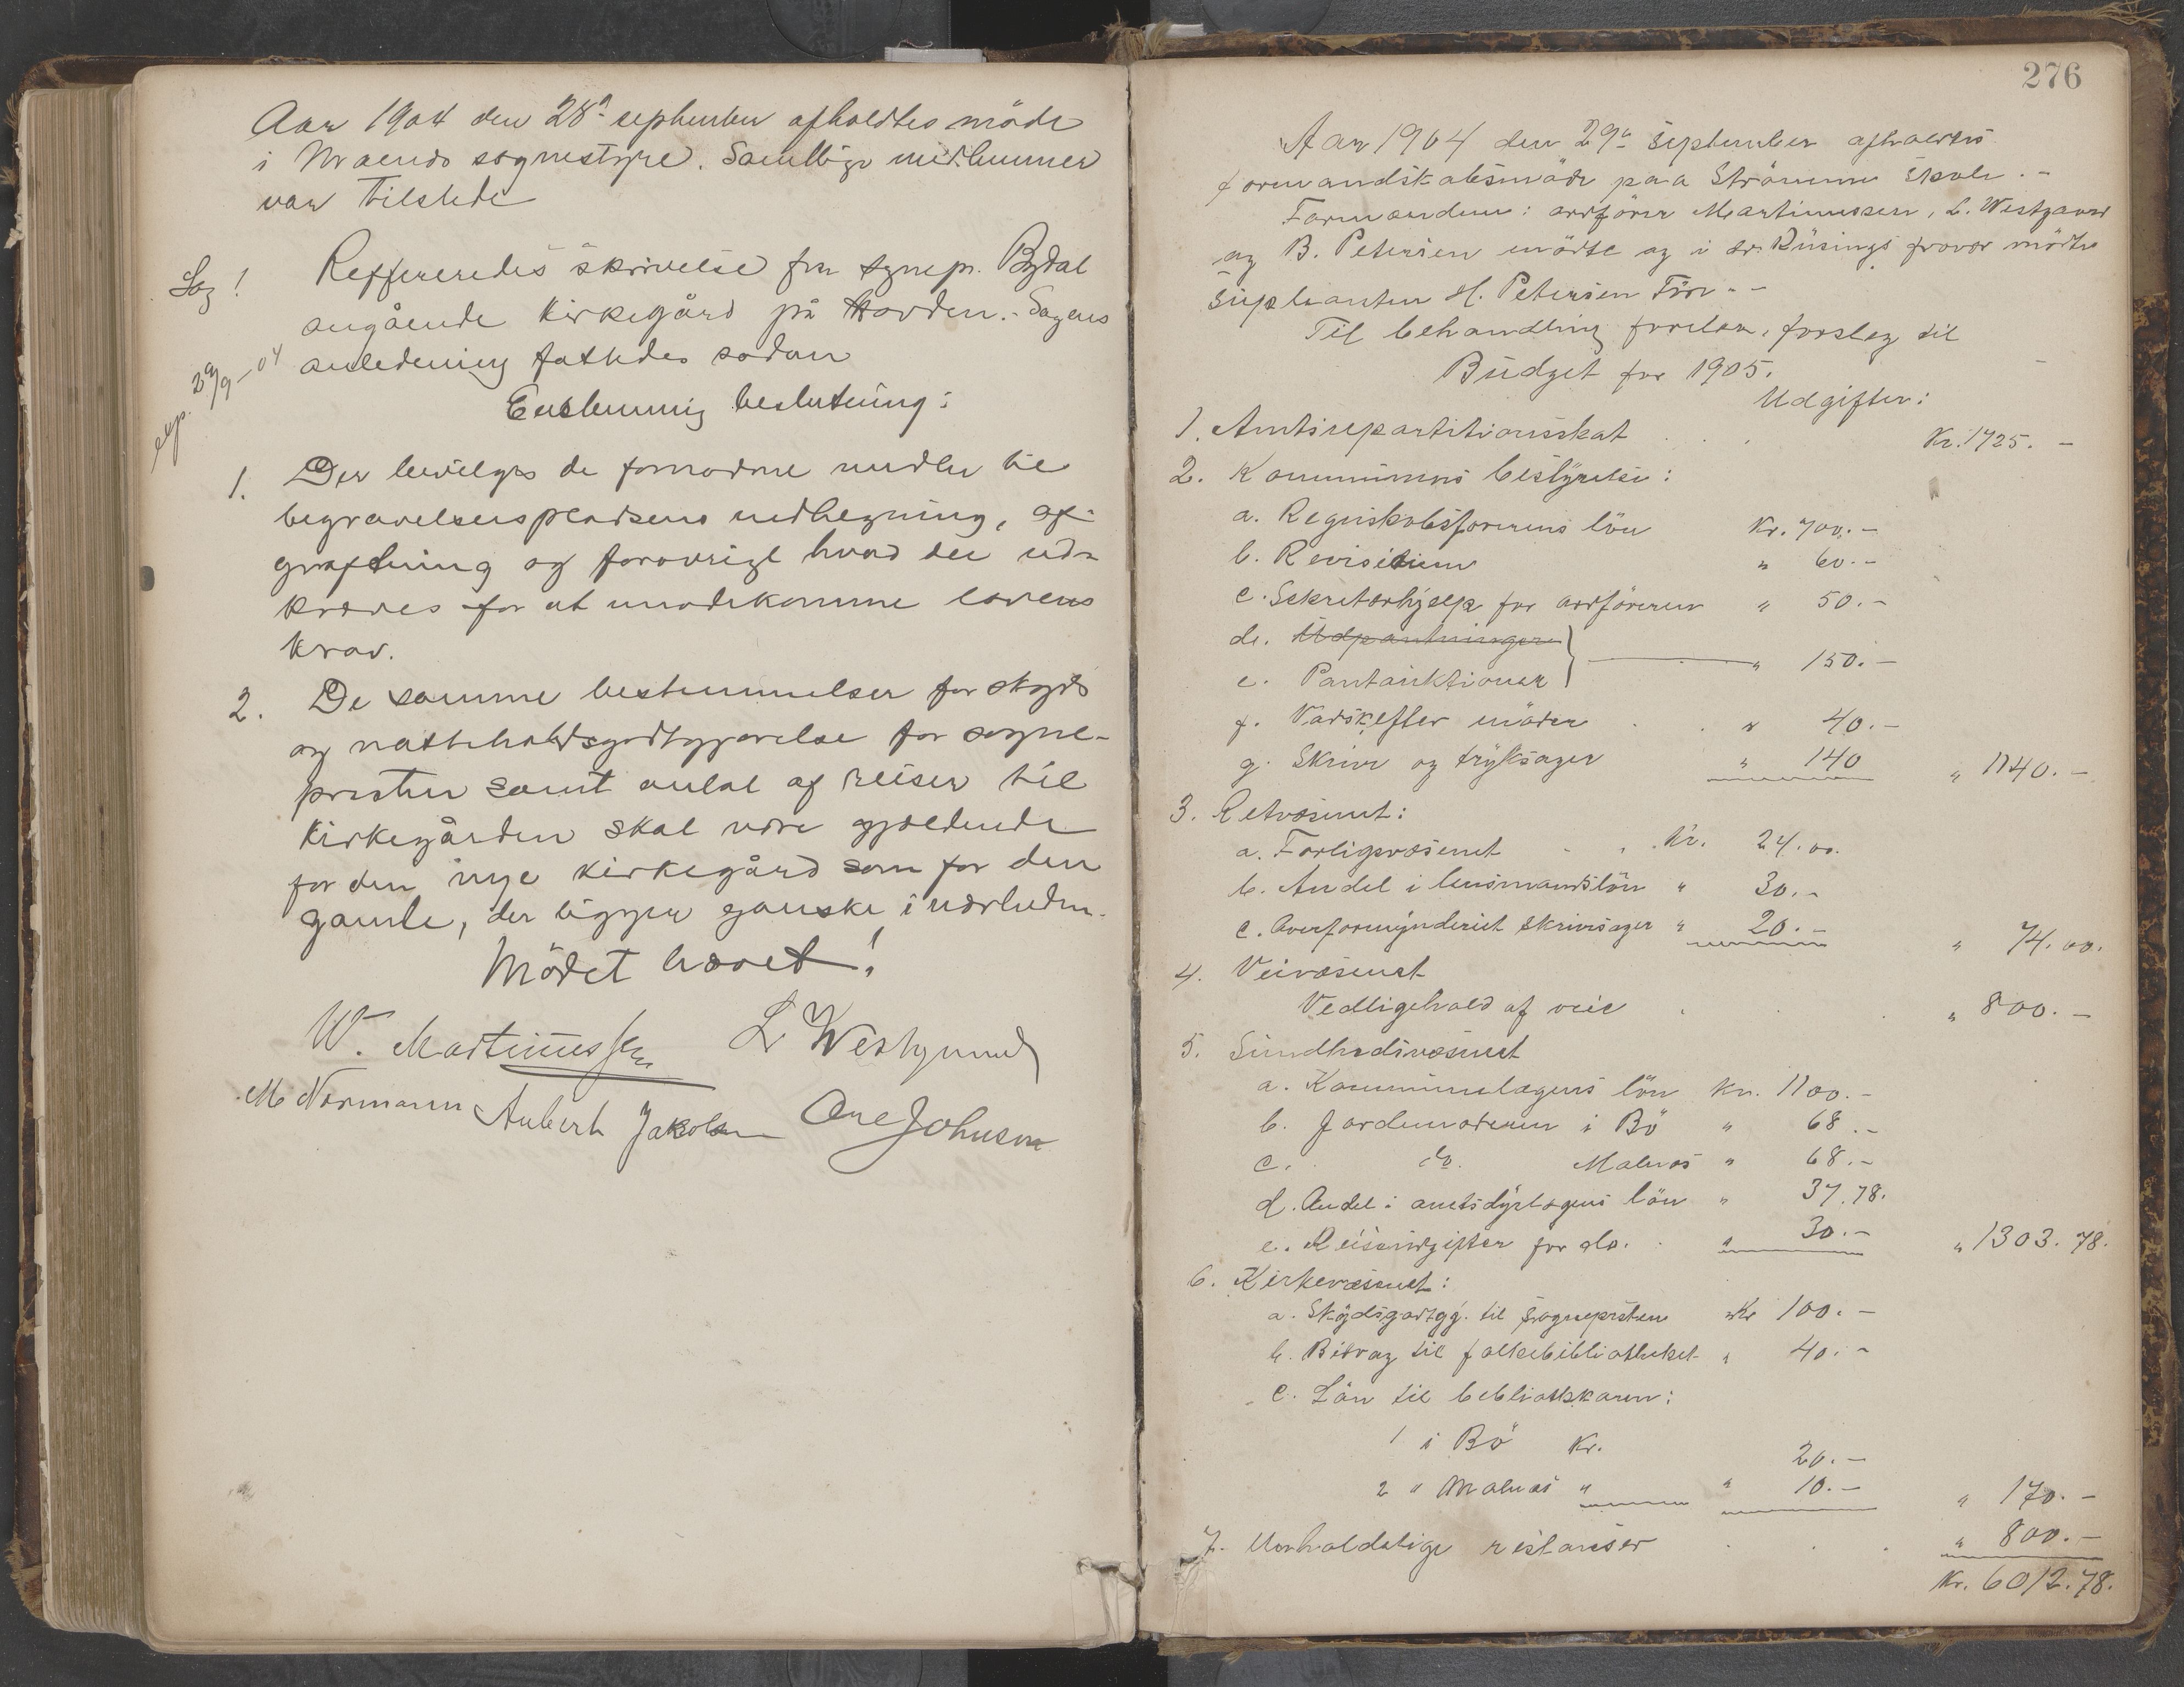 Aar 1904 den 28de september afholdtes møde
i Malnes sognestyre. Samtlige medlemmer
var tilstede
Sag 1
Reffereredes skrivelse fra sognep. Bydal
angående kirkegård på Hovden. - Sagens
anledning fattedes sådan
exp. 29/9-04
Enstemmig beslutning:
1. Der bevilges de fornødne midler til
begravelsespladsens indhegning, af-
grøftning og forøvrigt hvad der ud-
kræves for at imødekomme lovens
krav.
2. De samme bestemmelser for skyds
og natteholdsgodtgjørelse for sogne-
presten samt antal af reiser til
kirkegården skal være gjældende
for den nye kirkegård som for den
gamle, der ligger ganske i nærheden.
Mödet hævet!
W. Martinussen L Westgaard
M Normann Aubert Jakobsen Ole Johnson
276
Aar 1904 den 29de september afholdtes
formandskabsmöde paa Strömme skole. -
Formændene: ordförer Martinussen, L. Westgaard
og B. Petersen mödte og i dr. Rüsings fravær mödte
supleanten H. Petersen Före. -
Til behandling forelaa, forslag til
Budget for 1905.
Udgifter:
1. Amtsrepartitionsskat . . Kr. 1725. -
2. Kommunens bestyrelse:
a. Regnskabsförerens lön Kr. 700. -
b. Revisionen " 60. -
c. Sekretærhjælp for ordföreren " 50. -
d. Udpantninger
e. Pantauktioner " 150. -
f. Vask efter möder . . " 40. -
g. Skriv og tryksager " 140 " 1140. -
3. Retvæsenet:
a. Forligsvæsenet . . Kr. 24.00.
b. Andel i lensmandslön " 30. -
c. Overformynderiet skrivsager " 20. - " 74.00.
4. Veivæsenet
Vedligehold af veie . . . " 800. -
5. Sundhedsvæsenet
a. Kommunelægens lön Kr. 1100. -
b. Jordemoderen i Bö " 68. -
c. do. Malnes " 68. -
d. Andel i amtsdyrlægens lön " 37.78.
e. Reiseudgifter for do. . " 30. - " 1303.78.
6. Kirkevæsenet:
a. Skydsgodtgj. til sognepresten Kr 100. -
b. Bidrag til folkebibliotheket " 40. -
c. Lön til bibliothekaren:
1 i Bö Kr. 20. -
2 " Malnes " " 10. - " 170. -
7. Uerholdelige restanser . . . " 800. -
Kr. 6012.78.